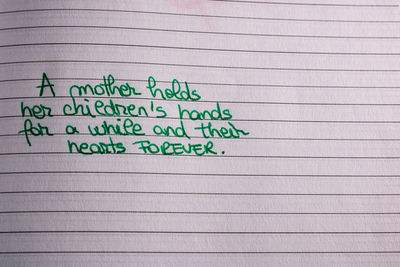 A mother holds
her children's hands
for a while and their
hearts FOREVER.